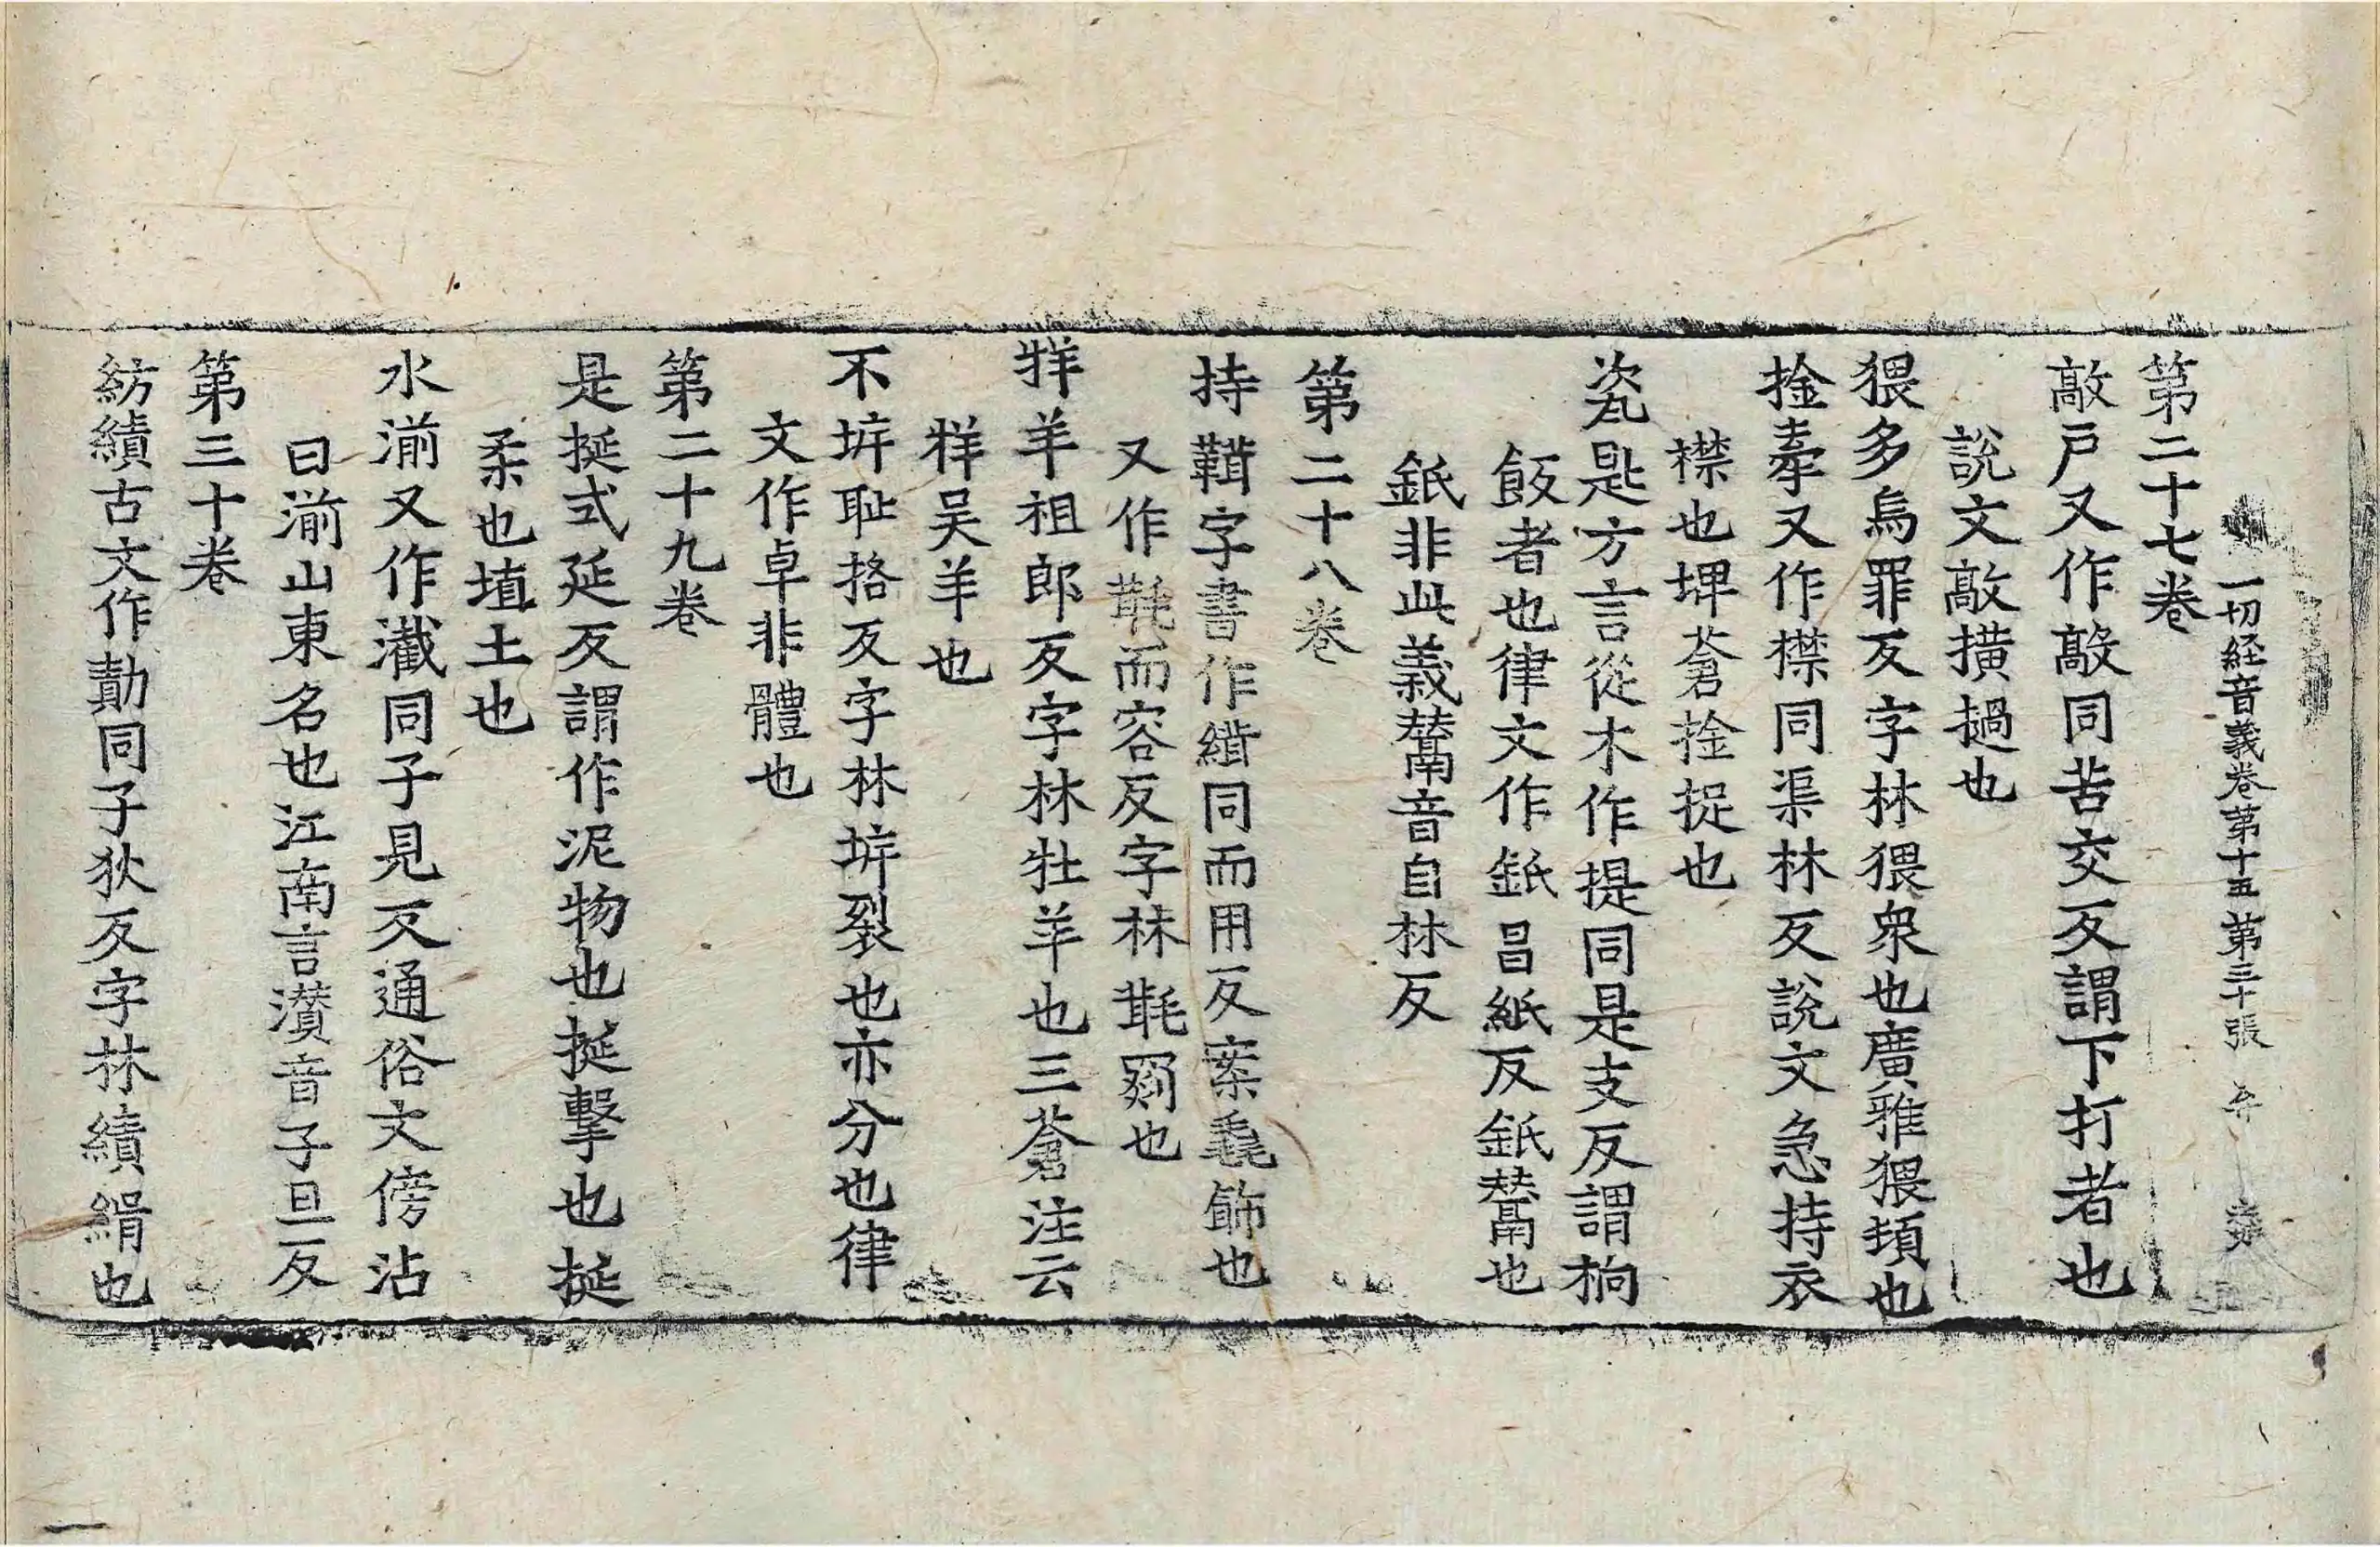 一切経音義卷第十五 第三十張
第二十七卷
敲戶又作敺同苦交反謂下打者也
說文敲擖撾也
猥多烏罪反字林猥衆也廣雅猥頓也
捦牽又作襟同渠林反說文急持衣
襟也埤蒼捦捉也
瓷匙方言從木作提同是支反謂杓
飯者也律文作䤠昌紙反䤠鬵也
䤠非此義鬵音自林反
第二十八卷
持䩸字書作縙同而用反案毳飾也
又作毦而容反字林毦罽也
牂羊祖郎反字林牡羊也三蒼注云
牂吴羊也
不㘸耻格反字林㘸裂也亦分也律
文作卓非體也
第二十九卷
是挻式延反謂作泥物也挻擊也挻
柔也埴土也
水湔又作濺同子見反通俗文傍沾
曰湔山東名也江南言灒音子旦反
第三十卷
紡績古文作勣同子狄反字林績緝也